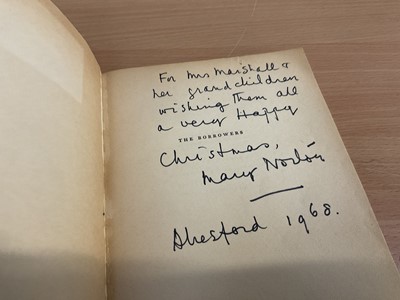 For Mrs Marshall &
her grandchildren
wishing them all
a very Happy
THE BORROWERS
Christmas,
Mary Norton
Alresford 1968.